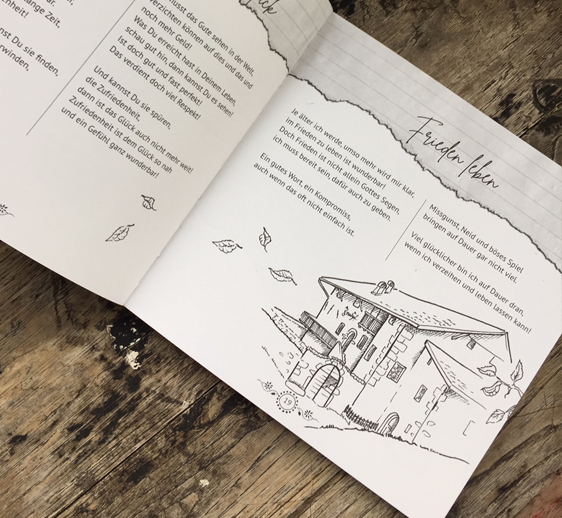 ange Zeit.
nheit!
nst Du sie finden,
rwinden,
musst das Gute sehen in der Welt,
verzichten können auf dies und das und
noch mehr Geld!
Was Du erreicht hast in Deinem Leben,
schau gut hin, dann kannst Du es sehen!
Ist doch gut und fast perfekt!
Das verdient doch viel Respekt!
Und kannst Du sie spüren,
die Zufriedenheit,
dann ist das Glück auch nicht mehr weit!
Zufriedenheit ist dem Glück so nah
und ein Gefühl ganz wunderbar!
Frieden leben
Je älter ich werde, umso mehr wird mir klar,
im Frieden zu leben ist wunderbar!
Doch Frieden ist nicht allein Gottes Segen,
ich muss bereit sein, dafür auch zu geben.
Ein gutes Wort, ein Kompromiss,
auch wenn das oft nicht einfach ist.
Missgunst, Neid und böses Spiel
bringen auf Dauer gar nicht viel.
Viel glücklicher bin ich auf Dauer dran,
wenn ich verzeihen und leben lassen kann!
19